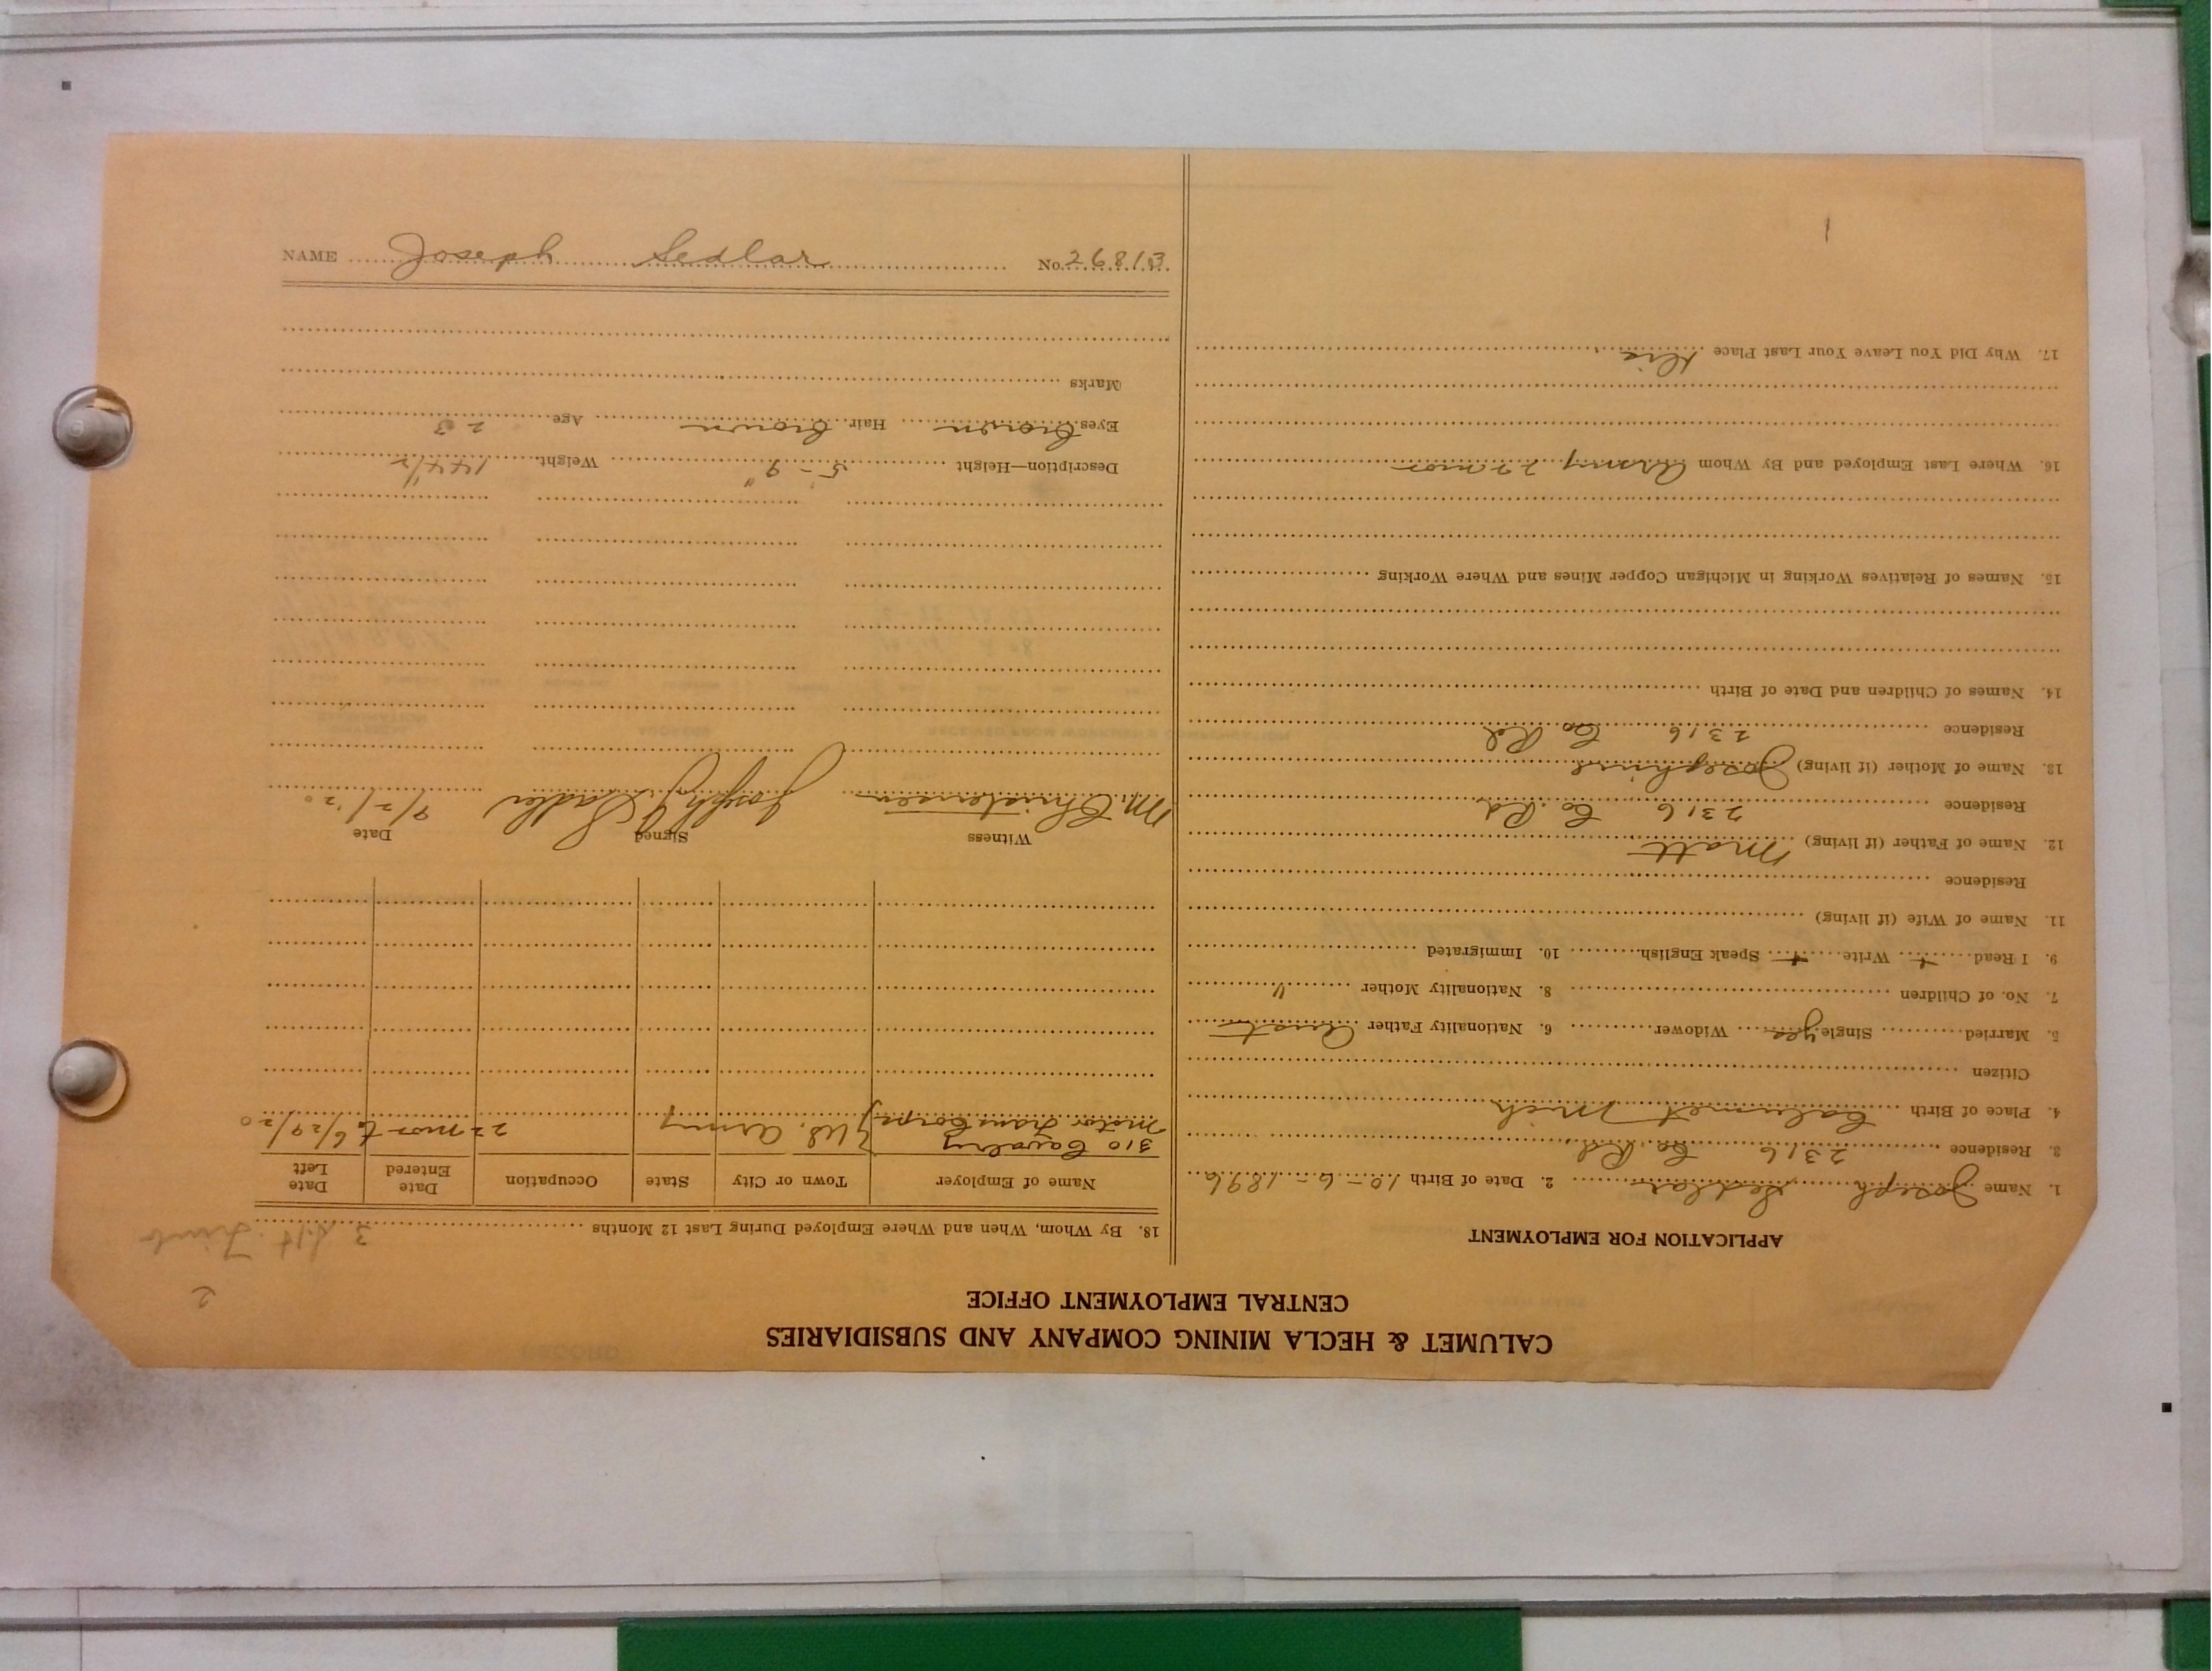 CALUMET & HECLA MINING COMPANY AND SUBSIDIARIES
CENTRAL EMPLOYMENT OFFICE
APPLICATION FOR EMPLOYMENT
1. Name Joseph Sedlar 2. Date of Birth 10-6-1896
3. Residence 2316 Co Rd.
4. Place of Birth Calumet Mich
Citizen
5. Married Single yes Widower 6. Nationality Father Aust
7. No. of Children 8. Nationality Mother "
9. I Read + Write + Speak English 10. Immigrated
11. Name of Wife (if living)
Residence
12. Name of Father (if living) Matt
Residence 2316 Co. Rd
13. Name of Mother (if living) Josephine
Residence 2316 Co Rd
14. Names of Children and Date of Birth
15. Names of Relatives Working in Michigan Copper Mines and Where Working
16. Where Last Employed and By Whom Army 22 mos
17. Why Did You Leave Your Last Place Dis
1
2
3
18. By Whom, When and Where Employed During Last 12 Months
Name of Employer Town or City State Occupation Date Entered Date Left
310 Cavalry
Motor Trans Corps } U.S. Army 22 mos to 6/29/20
Witness Signed Date
M. Christensen Joseph J Sadler 9/2/'20
Description—Height 5'-9" Weight 144 1/2
Eyes brown Hair brown Age 23
Marks
NAME Joseph Sedlar No. 26813